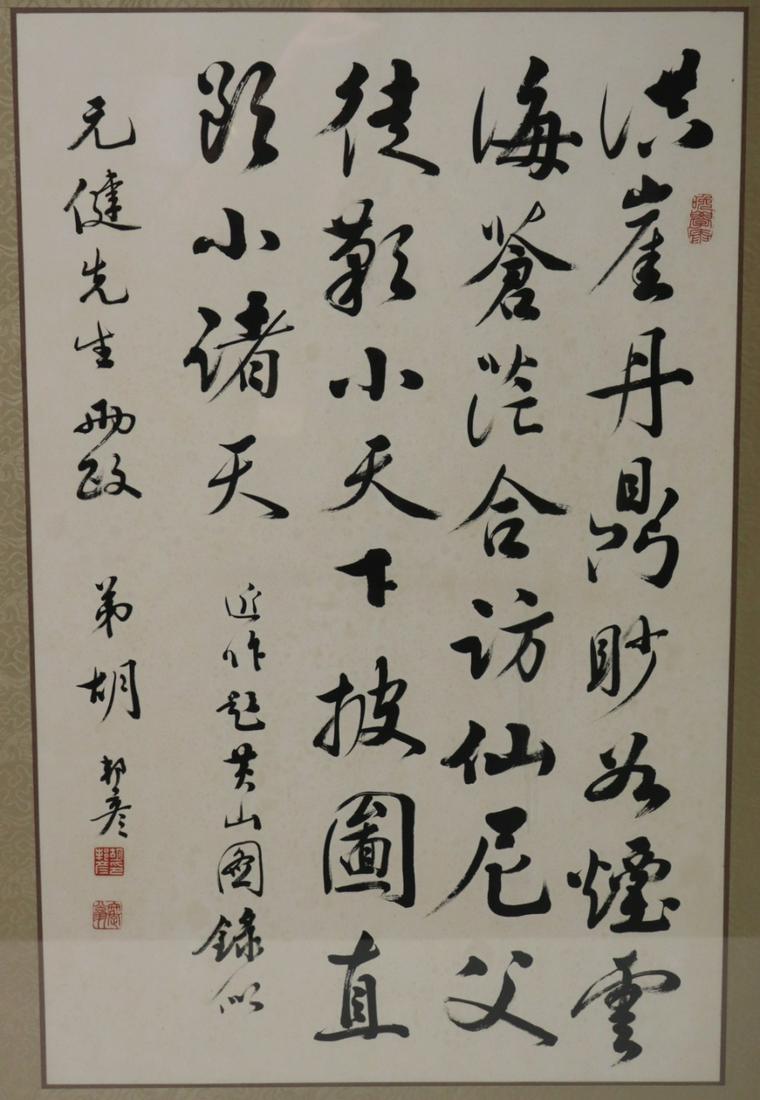 洪崖丹鼎眇煙雲
海蒼茫合訪仙尼父
徒歎小天下披圖直
欲小諸天
近作題黃山圖錄似
元健先生刪政 弟胡邦彥